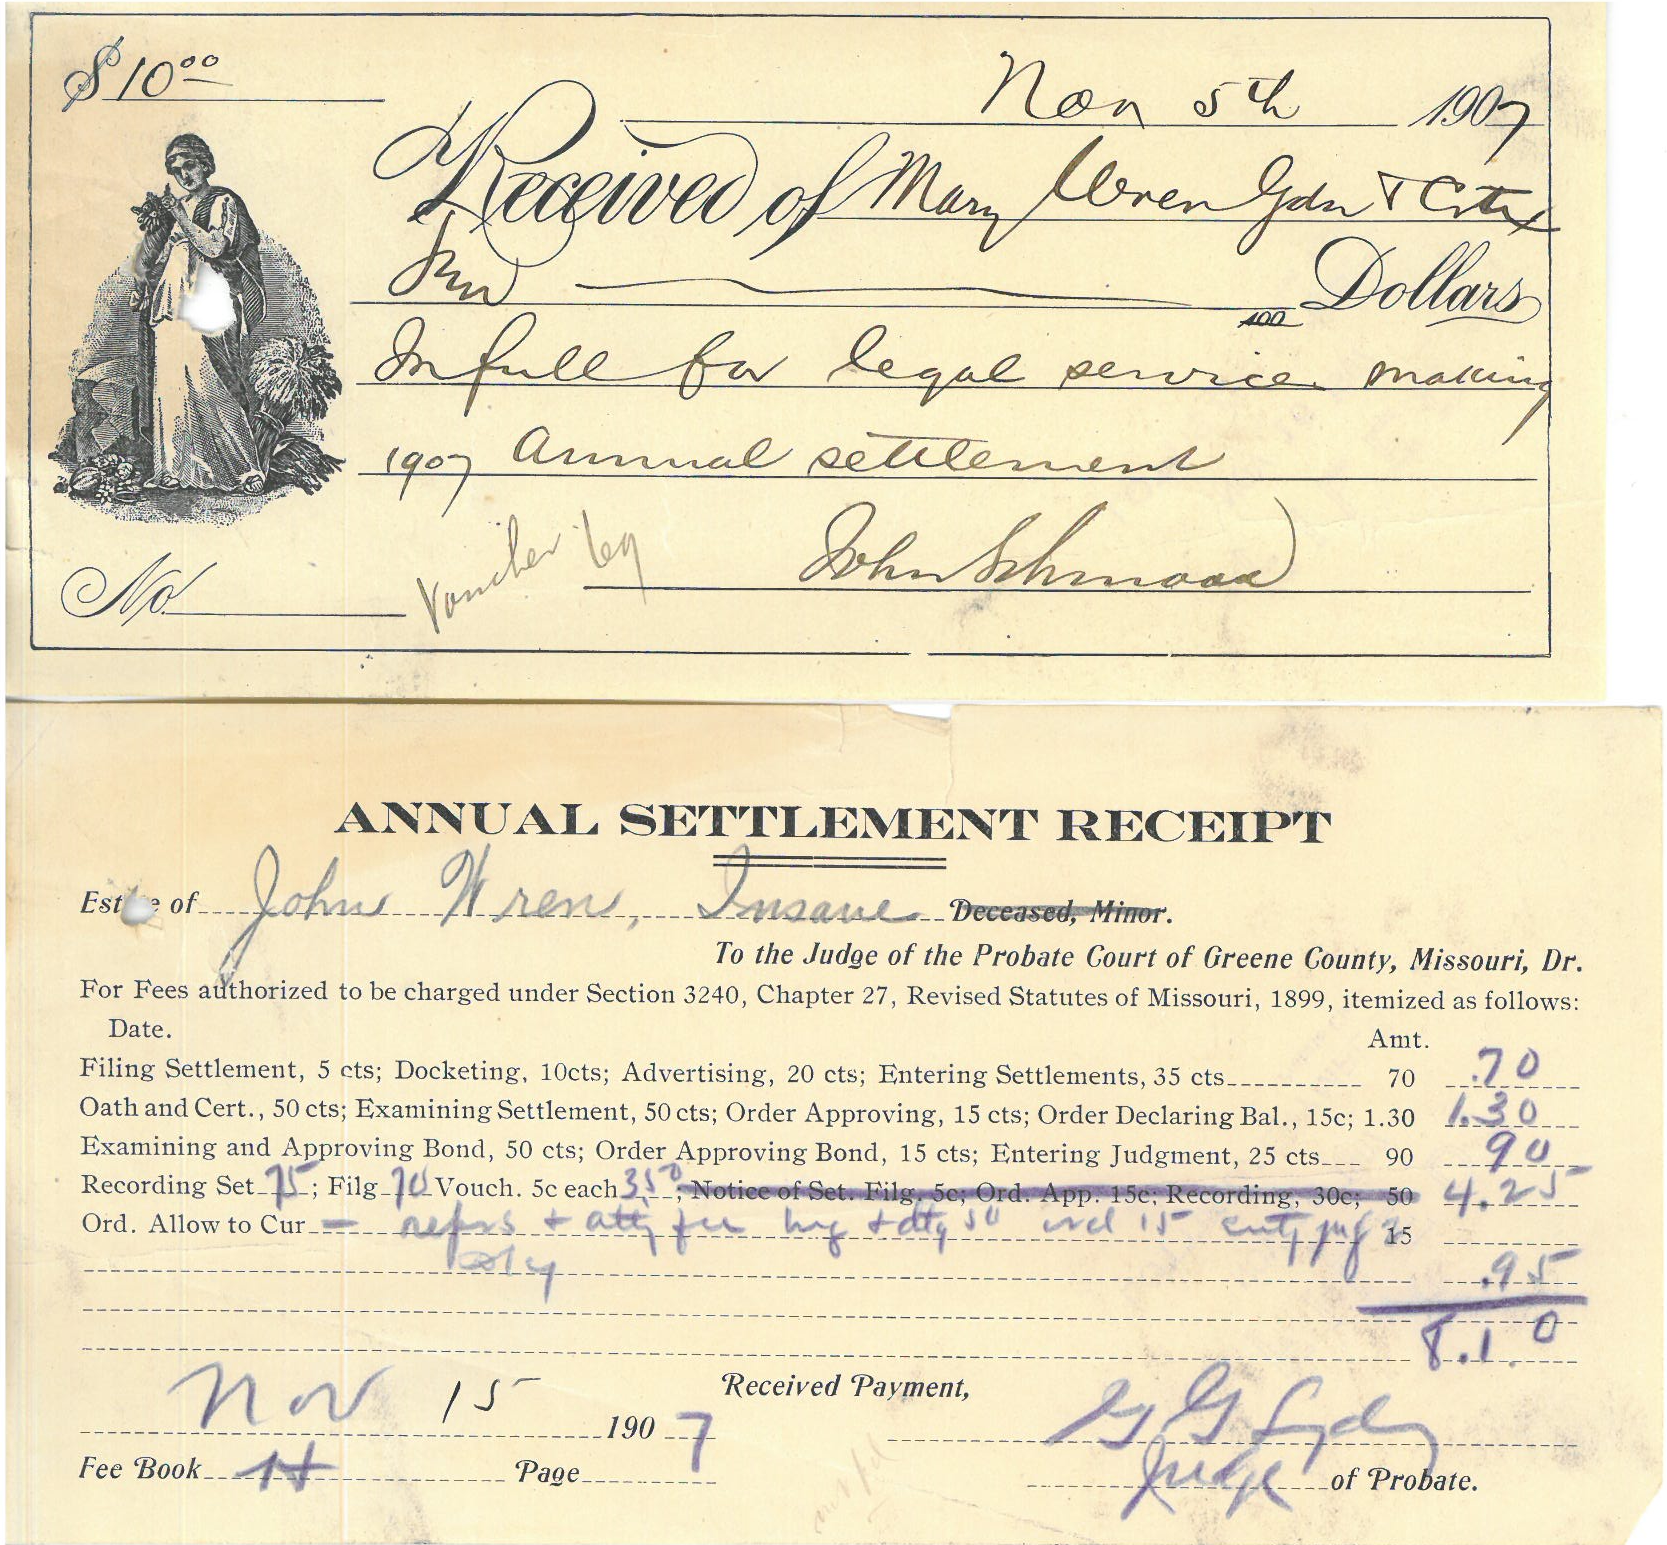 $ 10.00
Nov 5th 1907
Received of Mary Wren Gdn & Crtx
Ten 100 Dollars
In full for legal service making
1907 Annual settlement
No. Voucher John Schmook
ANNUAL SETTLEMENT RECEIPT
Estate of John Wren, Insane Deceased, Minor.
To the Judge of the Probate Court of Greene County, Missouri, Dr.
For Fees authorized to be charged under Section 3240, Chapter 27, Revised Statutes of Missouri, 1899, itemized as follows:
Date. Amt.
Filing Settlement, 5 cts; Docketing, 10cts; Advertising, 20 cts; Entering Settlements, 35 cts 70 .70
Oath and Cert., 50 cts; Examining Settlement, 50 cts; Order Approving, 15 cts; Order Declaring Bal., 15c; 1.30 1.30
Examining and Approving Bond, 50 cts; Order Approving Bond, 15 cts; Entering Judgment, 25 cts 90 90
Recording Set 75; Filg 70 Vouch. 5c each 350; Notice of Set. Filg. 5c; Ord. App. 15c; Recording, 30c; 50 4.25
Ord. Allow to Cur 50 15 15
.95
8.10
Nov 15 1907 Received Payment, G G Lydy
Fee Book H Page Judge of Probate.